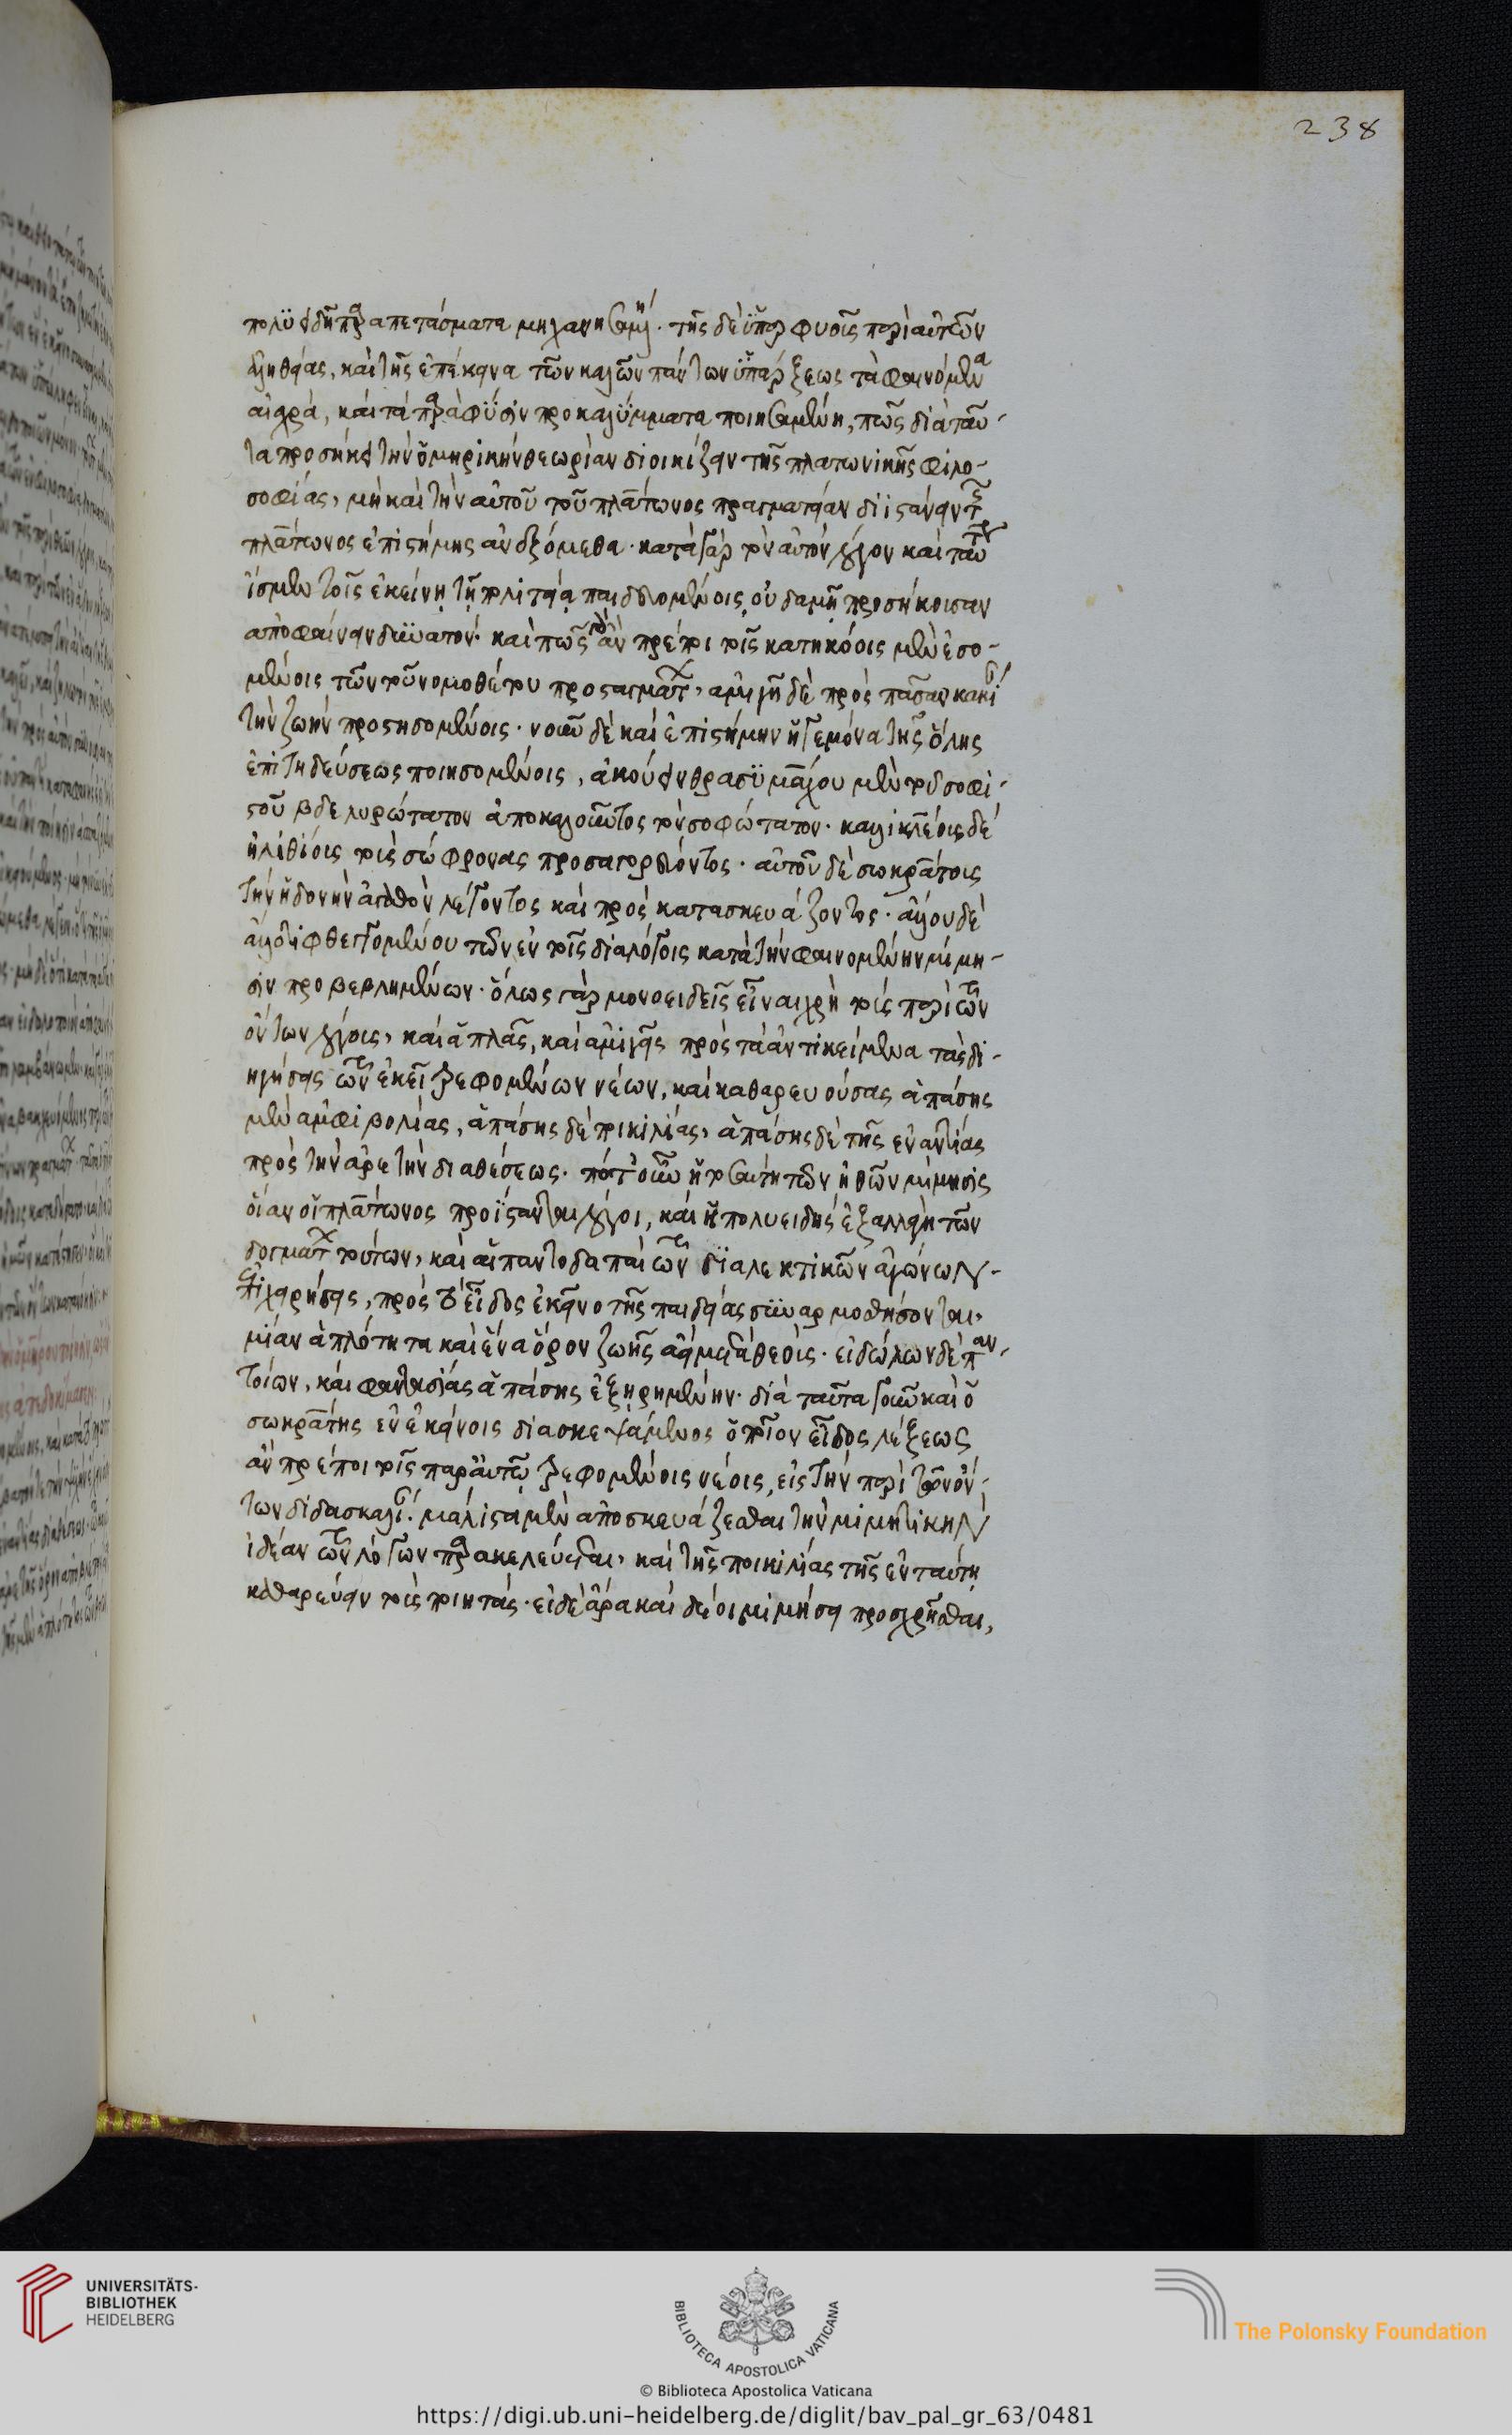 238
πολυειδῆ παραπετάσματα μηχανησαμένη. τῆς δὲ ὑπερφυοῦς περὶ αὐτῶν
ἀληθείας, καὶ τῆς ἐπέκεινα τῶν καλῶν πάντων ὑπάρξεως τὰ φαινόμενα
αἰσχρὰ, καὶ τὰ παρὰ φύσιν προκαλύμματα ποιησαμένη, πῶς διὰ ταῦ-
τα προσήκει τὴν ὁμηρικὴν θεωρίαν διοικίζειν τῆς πλατωνικῆς φιλο-
σοφίας, μὴ καὶ τὴν αὐτοῦ τοῦ πλάτωνος πραγματείαν διϊστάνειν τῆς
πλάτωνος ἐπιστήμης ἀνεξόμεθα. κατὰ γὰρ τὸν αὐτὸν λόγον καὶ ταύτην
ἴσμεν τοῖς ἐκείνῃ τῇ πολιτείᾳ παιδευομένοις οὐδαμῇ προσήκουσαν
ἀποφαίνειν δυνατόν. καὶ πῶς γὰρ ἂν πρέποι τοῖς κατηκόοις μὲν ἐσο-
μένοις τῶν τοῦ νομοθέτου προσταγμάτων, ἀμιγῆ δὲ πρὸς πᾶσαν κακίαν
τὴν ζωὴν προστησομένοις. νοῦν δὲ καὶ ἐπιστήμην ἡγεμόνα τῆς ὅλης
ἐπιτηδεύσεως ποιησομένοις, ἀκούειν θρασυμάχου μὲν τοῦ σοφι-
στοῦ βδελυρώτατον ἀποκαλοῦντος τὸν σοφώτατον. καλικλέους δὲ
ἠλιθίους τοὺς σώφρονας προσαγορεύοντος. αὐτοῦ δὲ σωκράτους
τὴν ἡδονὴν ἀγαθὸν λέγοντος καὶ πρὸς κατασκευάζοντος. ἄλλου δὲ
ἄλλο τι φθεγγομένου τῶν ἐν τοῖς διαλόγοις κατὰ τὴν φαινομένην μίμη-
σιν προβεβλημένων. ὅλως γὰρ μονοειδεῖς εἶναι χρὴ τοὺς περὶ τῶν
ὄντων λόγους, καὶ ἁπλᾶς, καὶ ἀμιγεῖς πρὸς τὰ ἀντικείμενα τὰς δι-
ηγήσεις τῶν ἐκεῖ τρεφομένων νέων, καὶ καθαρευούσας ἁπάσης
μὲν ἀμφιβολίας, ἁπάσης δὲ ποικιλίας, ἁπάσης δὲ τῆς ἐναντίας
πρὸς τὴν ἀρετὴν διαθέσεως. πότ' οὖν ἡ τοσαύτη τῶν ἠθῶν μίμησις
οἵαν οἱ πλάτωνος προΐστανται λόγοι, καὶ ἡ πολυειδὴς ἐξαλλαγὴ τῶν
δογμάτων τούτων, καὶ αἱ παντοδαπαὶ τῶν διαλεκτικῶν ἀγώνων
ἐπιχειρήσεις, πρὸς τὸ εἶδος ἐκεῖνο τῆς παιδείας συναρμοσθήσονται,
μίαν ἁπλότητα καὶ ἕνα ὅρον ζωῆς ἀεὶ μεταθέοις. εἰδώλων δὲ παν-
τοίων, καὶ φαντασίας ἁπάσης ἐξῃρημένην. διὰ ταῦτα γοῦν καὶ ὁ
σωκράτης ἐν ἐκείνοις διασκεψάμενος ὁποῖον εἶδος λέξεως
ἂν πρέποι τοῖς παρ' αὐτῷ τρεφομένοις νέοις, εἰς τὴν περὶ τῶν ὄν-
των διδασκαλίαν. μάλιστα μὲν ἀποσκευάζεσθαι τὴν μιμητικὴν
ἰδέαν τῶν λόγων παρακελεύεται, καὶ τῆς ποικιλίας τῆς ἐν ταύτῃ
καθαρεύειν τοὺς ποιητάς. εἰ δὲ ἄρα καὶ δέοι μιμήσει προσχρῆσθαι,
UNIVERSITÄTS-
BIBLIOTHEK
HEIDELBERG
BIBLIOTECA APOSTOLICA VATICANA
The Polonsky Foundation
© Biblioteca Apostolica Vaticana
https://digi.ub.uni-heidelberg.de/diglit/bav_pal_gr_63/0481